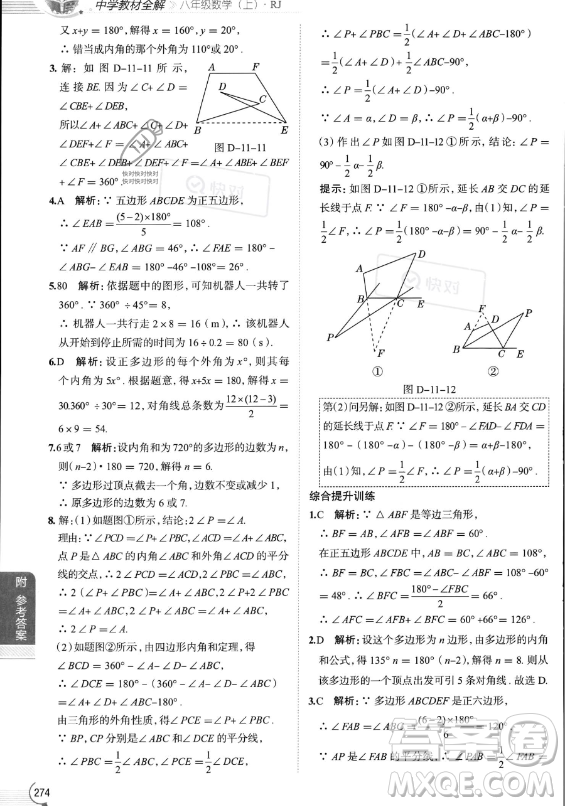 中学教材全解 八年级数学（上）·RJ
又x+y = 180°，解得x = 110°，y = 70°.
∴ 错当成内角的那个外角为110°或20°.
3. 解：如图D-11-11所示，
连接BE. 因为∠C+∠D =
∠CBE+∠DEB，
所以∠A+∠ABC+∠C+∠D+
∠DEF+∠F = ∠A+∠ABC+
∠CBE+∠DEB+∠DEF+∠F = ∠A+∠ABE+∠BEF
+∠F = 360°.
图D-11-11
4.A 解析：∵ 五边形ABCDE为正五边形，
∴ ∠EAB = (5-2)×180°/5 = 108°.
∵ AF∥BG，∠ABG = 46°，∴ ∠FAE = 180°-
∠ABG-∠EAB = 180°-46°-108° = 26°.
5.80 解析：依据题中的图形，可知机器人一共转了
360°. ∵ 360°÷45° = 8，
∴ 机器人一共行走2×8 = 16（m），∴ 该机器人
从开始到停止所需的时间为16÷0.2 = 80（s）.
6.D 解析：设正多边形的每个外角为x°，则其每
个内角为5x°. 根据题意，得x+5x = 180，解得x =
30.360°÷30° = 12，对角线总条数为12×(12-3)/2 =
6×9 = 54.
7.6或7 解析：设内角和为720°的多边形的边数为n，
则(n-2)·180 = 720，解得n = 6.
∵ 多边形过顶点截去一个角，边数不变或减少1，
∴ 原多边形的边数为6或7.
8. 解：(1)如题图①所示，结论：2∠P = ∠A.
理由：∵ ∠PCD = ∠P+∠PBC，∠ACD = ∠A+∠ABC，
点P是△ABC的内角∠ABC和外角∠ACD的平分
线的交点，∴ 2∠PCD = ∠ACD，2∠PBC = ∠ABC，
∴ 2（∠P+∠PBC）= ∠A+∠ABC，2∠P+2∠PBC
= ∠A+∠ABC，2∠P+∠ABC = ∠A+∠ABC，
∴ 2∠P = ∠A.
(2)如题图②所示，由四边形内角和定理，得
∠BCD = 360°-∠A-∠D-∠ABC，
∴ ∠DCE = 180°-（360°-∠A-∠D-∠ABC）
= ∠A+∠D+∠ABC-180°.
由三角形的外角性质，得∠PCE = ∠P+∠PBC，
∵ BP，CP分别是∠ABC和∠DCE的平分线，
∴ ∠PBC = 1/2∠ABC，∠PCE = 1/2∠DCE，
∴ ∠P+∠PBC = 1/2（∠A+∠D+∠ABC-180°）
= 1/2（∠A+∠D）+1/2∠ABC-90°，
∴ ∠P = 1/2（∠A+∠D）-90°.
∵ ∠A = α，∠D = β，∴ ∠P = 1/2（α+β）-90°.
(3)作出∠P如图D-11-12①所示，结论：∠P =
90°-1/2α-1/2β.
提示：如图D-11-12①所示，延长AB交DC的延
长线于点F. ∵ ∠F = 180°-α-β，由(1)知，∠P =
1/2∠F，∴ ∠P = 1/2（180°-α-β）= 90°-1/2α-1/2β.
① ②
图D-11-12
第(2)问另解：如图D-11-12②所示，延长BA交CD
的延长线于点F. ∵ ∠F = 180°-∠FAD-∠FDA =
180°-（180°-α）-（180°-β）= α+β-180°，
由(1)知，∠P = 1/2∠F，∴ ∠P = 1/2（α+β）-90°.
综合提升训练
1.C 解析：∵ △ABF是等边三角形，
∴ BF = AB，∠AFB = ∠ABF = 60°.
在正五边形ABCDE中，AB = BC，∠ABC = 108°，
∴ BF = BC，∠FBC = ∠ABC-∠ABF = 108°-60°
= 48°. ∴ ∠BFC = (180°-∠FBC)/2 = 66°，
∴ ∠AFC = ∠AFB+∠BFC = 60°+66° = 126°.
2.D 解析：设这个多边形为n边形，由多边形的内角
和公式，得135°n = 180°（n-2），解得n = 8. 则从
该多边形的一个顶点出发可引5条对角线. 故选D.
3.C 解析：∵ 多边形ABCDEF是正六边形，
∴ ∠FAB = (6-2)×180°/6 = 120°.
∵ AP是∠FAB的平分线，∴ ∠PAB = 1/2∠FAB =
附 参考答案
274
快对
作业精灵
MXQE.COM